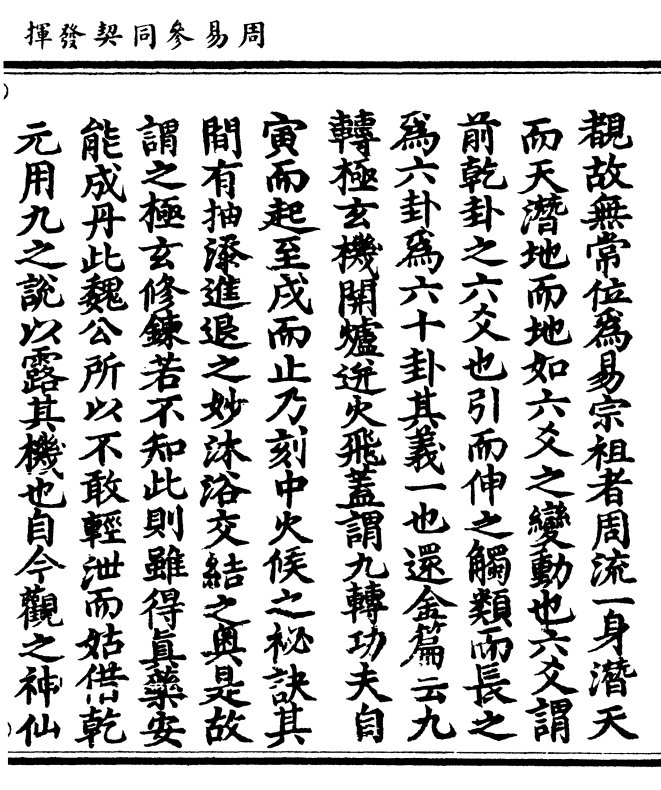 周易參同契發揮
覩故無常位爲易宗祖者周流一身潛天
而天潛地而地如六爻之變動也六爻謂
前乾卦之六爻也引而伸之觸類而長之
爲六卦爲六十卦其義一也還金篇云九
轉極玄機開爐迸火飛蓋謂九轉功夫自
寅而起至戌而止乃刻中火候之祕訣其
間有抽添進退之妙沐浴交結之奧是故
謂之極玄修鍊若不知此則雖得眞藥安
能成丹此魏公所以不敢輕泄而姑借乾
元用九之說以露其機也自今觀之神仙